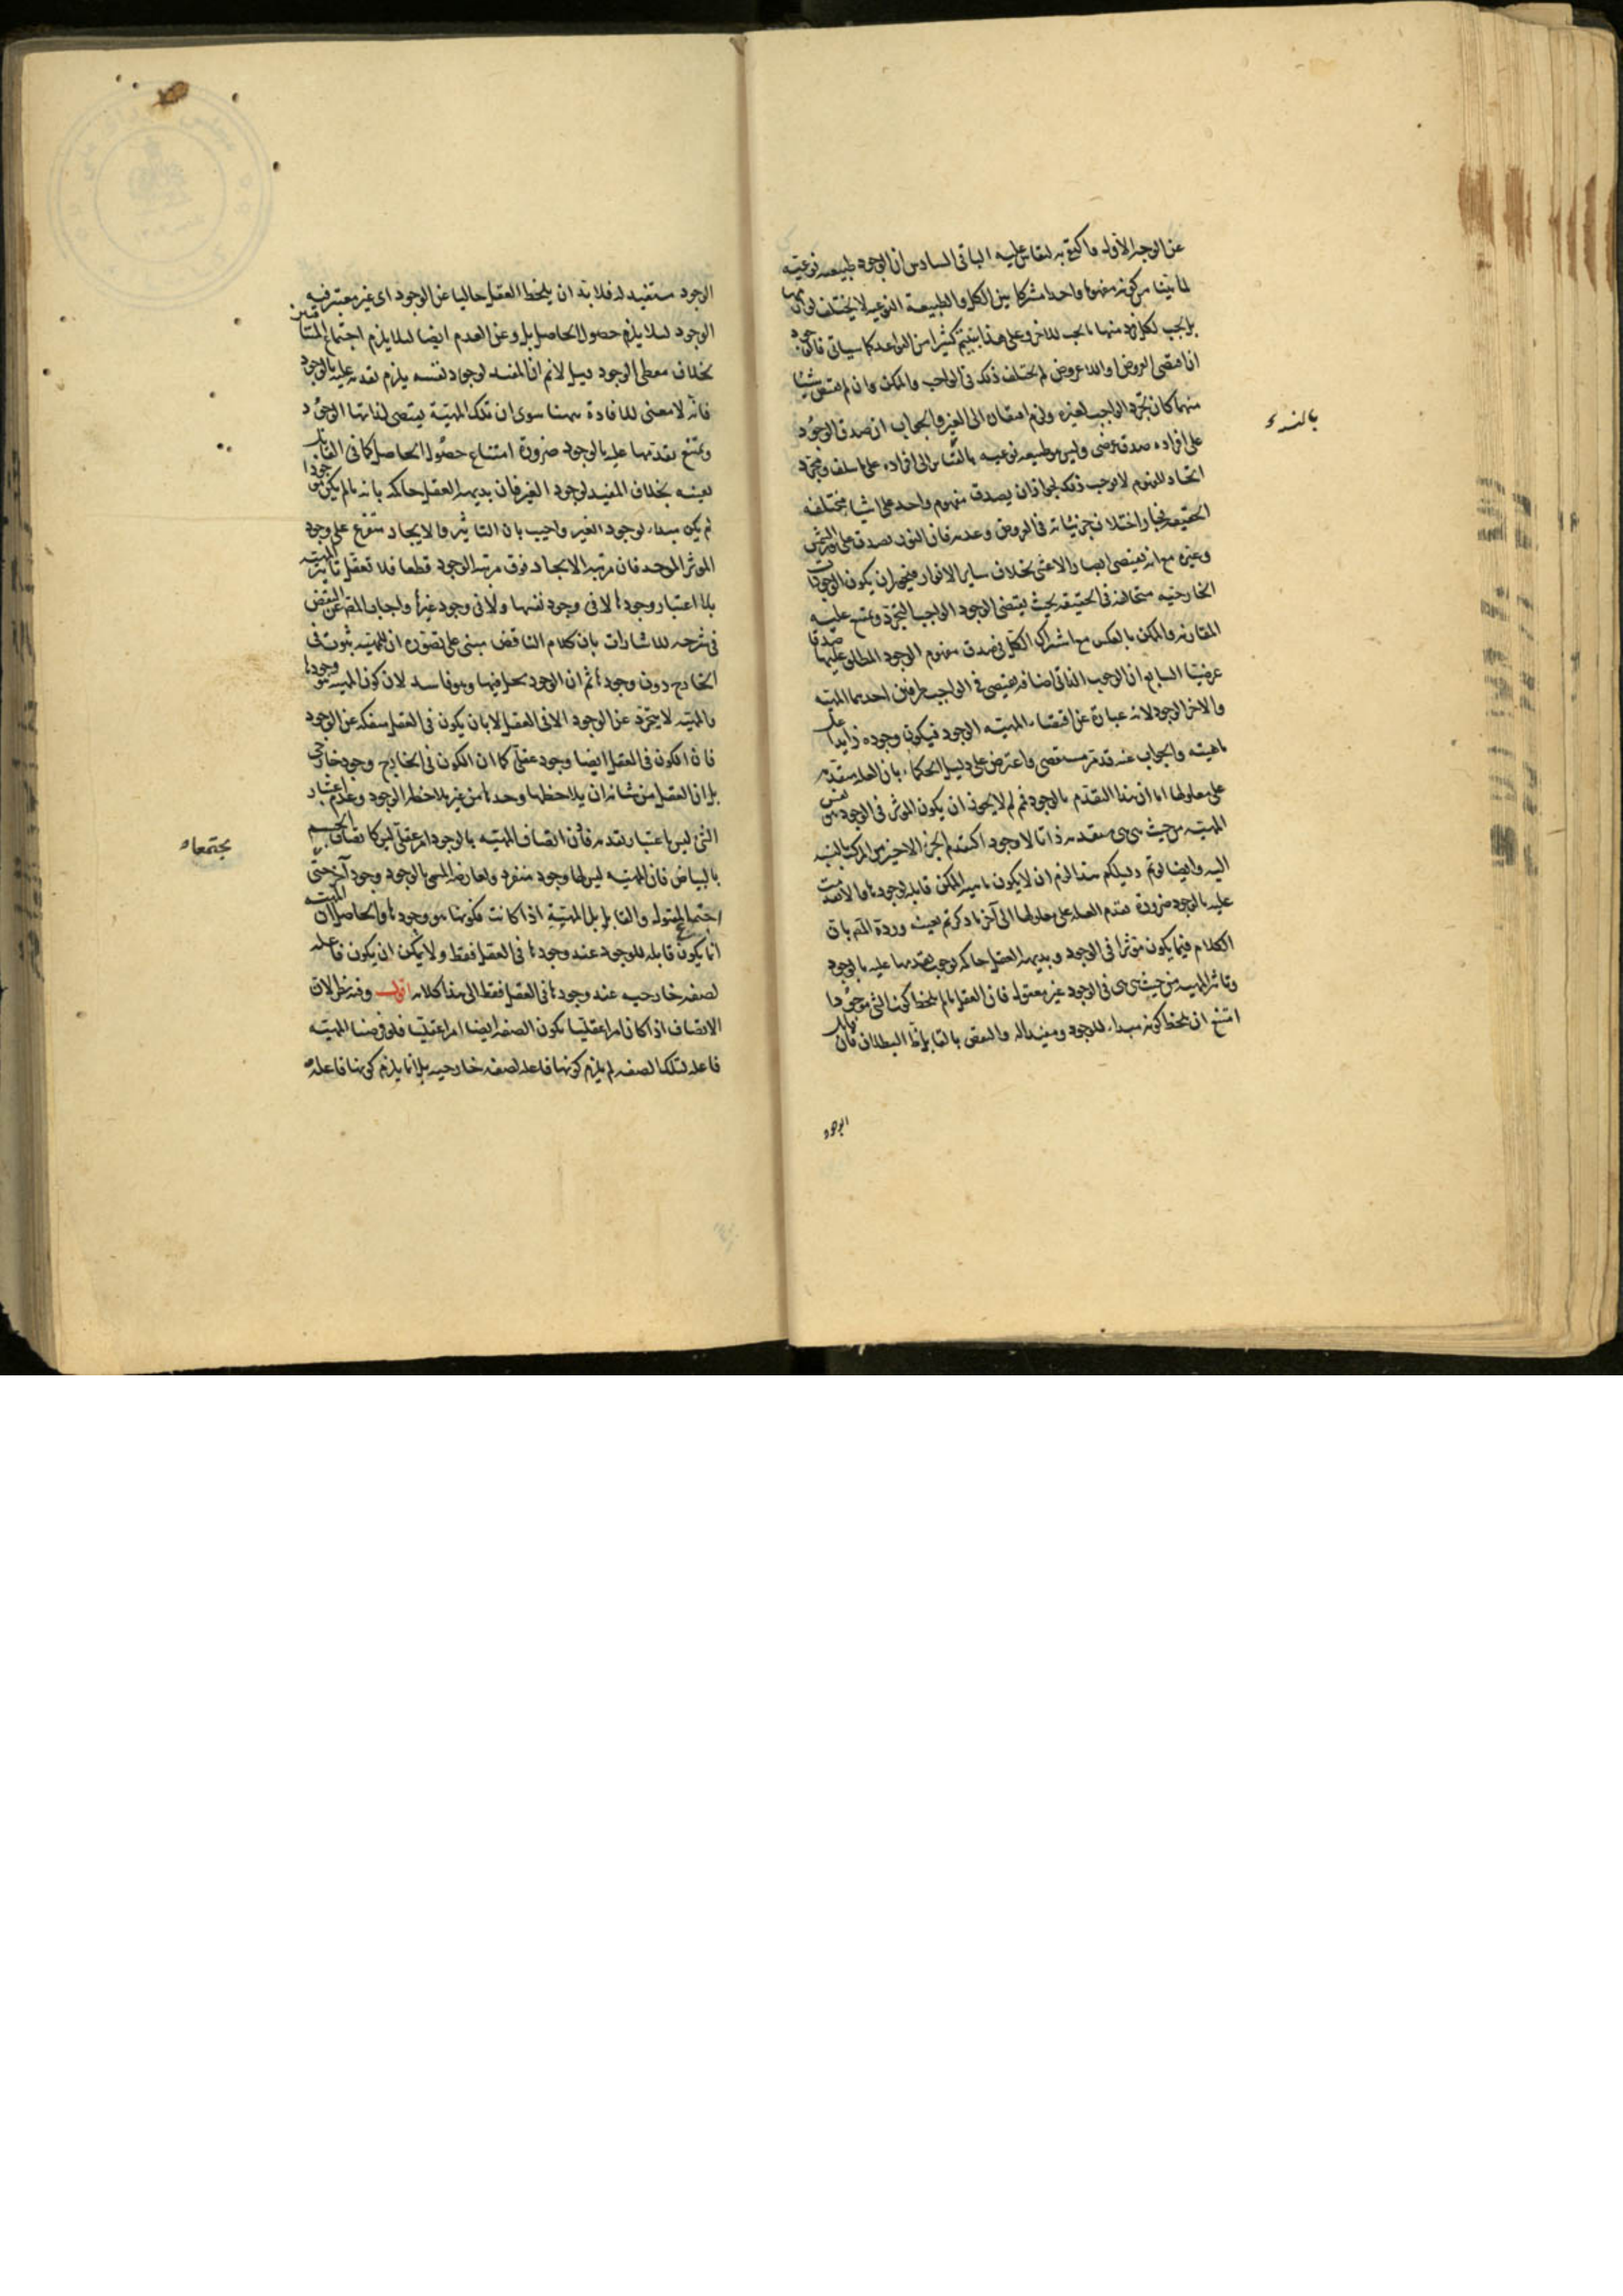 عن الوجه الأول فاكتف به لتقاس عليه الباقى السادس ان الوجود طبيعه نوعيه
لما بينا من كونه مفهوما واحدا مشتركا بين الكل والطبيعة النوعيه لا يختلف لوازمها
بل يجب لكل فرد منها ما يجب للاخر وعلى هذا يبتنى كثيرا من القواعد كما سياتى فالوجود
ان اقتضى العروض او اللاعروض لم يختلف ذلك فى الواجب والممكن وان لم يقتض شيئا
منهما كان تجرد الواجب لغيره ولزم افتقاره الى الغير والجواب ان صدق الوجود
على افراده صدق عرضى وليس هو طبيعه نوعيه بالنسبة الى افراده على ما سلف ومجرد
اتحاد المفهوم لا يوجب ذلك لجواز ان يصدق مفهوم واحد على اشيا مختلفه
الحقيقه فيجوز اختلاف جزئياته فى العروض وعدمه فان النور يصدق على نور الشمس
وغيره مع انه يقتضى ابصار الاعشى بخلاف ساير الانوار فيجوز ان يكون الوجودات
الخارجيه متخالفه فى الحقيقه بحيث يقتضى الوجود الواجب التجرد ويمتنع عليه
المقارنه والممكن بالعكس مع اشتراك الكل فى صدق مفهوم الوجود المطلق عليها صدقا
عرضيا السابع ان الوجوب الذاتى اضافه يقتضى فى الواجب طرفين احدهما المهيه
والاخر الوجود لانه عبارة عن اقتضاء المهيه الوجود فيكون وجوده زايدا على
ماهيته والجواب عنه قد مر مستقصى واعترض على دليل الحكماء بان العله متقدمه
على معلولها اما ان هذا التقدم بالوجود فمم لم لا يجوز ان يكون المؤثر فى الوجود نفس
المهيه من حيث هى هى متقدمه ذاتا لا وجودا كتقدم الجزء الاخير من المركب بالنسبه
اليه وايضا لو تم دليلكم هذا لزم ان لا يكون ماهيه الممكن قابله لوجودها والا تقدمت
عليه بالوجود ضرورة تقدم العله على معلولها الى آخر ما ذكرتم بعينه وردة المص بان
الكلام فيما يكون مؤثرا فى الوجود وبديهه العقل حاكمه بوجوب تقدمها عليه بالوجود
وتاثير المهيه من حيث هى هى فى الوجود غير معقول فان العقل ما لم يلحظ كون الشى موجودا
امتنع ان يلحظ كونه مبداء للوجود ومفيدا له والنقض بالقابل ظ البطلان فان قابل
الوجود
الوجود مستفيد له فلا بد ان يلحظ العقل خاليا عن الوجود اى غير معتبر فيه
الوجود لئلا يلزم حصول الحاصل بل وعن العدم ايضا لئلا يلزم اجتماع المتنافيين
بخلاف معطى الوجود قيل لا نم ان المفيد لوجود نفسه يلزم تقدمه عليه بالوجود
فانه لا معنى للافادة ههنا سوى ان تلك المهية يقتضى لذاتها الوجود
ويمتنع تقدمها عليه بالوجود ضرورة امتناع حصول الحاصل كما فى القابل
بعينه بخلاف المفيد لوجود الغير فان بديهه العقل حاكمه بانه ما لم يكن موجودا
لم يكن مبداء لوجود الغير واجيب بان التاثير والايجاد متفرع على وجود
المؤثر الموجد فان مرتبه الايجاد فوق مرتبه الوجود قطعا فلا تعقل تاثير المهيه
بلا اعتبار وجودها لا فى وجود نفسها ولا فى وجود غيرها واجاب المص عن النقض
فى شرحه للاشارات بان كلام الناقض مبنى على تصوره ان للمهيه ثبوت فى
الخارج دون وجودها ثم ان الوجود يحل فيها وهو فاسد لان كون المهيه هو وجودها
والمهيه لا يتجرد عن الوجود الا فى العقل لا بان يكون فى العقل منفكه عن الوجود
فان الكون فى العقل ايضا وجود عقلى كما ان الكون فى الخارج وجود خارجى
بل ان العقل من شانه ان يلاحظها وحدها من غير ملاحظه الوجود وعدم اعتبار
الشى ليس باعتبار لعدمه فاذن اتصاف المهيه بالوجود امر عقلى ليس كاتصاف الجسم
بالبياض فان المهيه ليس لها وجود منفرد ولعارضه المسمى بالوجود وجود آخر حتى
اجتماع المقبول والقابل بل المهية اذا كانت فكونها هو وجودها والحاصل ان المهيه
انما يكون قابله للوجود عند وجودها فى العقل فقط ولا يمكن ان يكون فاعله
لصفه خارجيه عند وجودها فى العقل فقط الى هنا كلامه اقول وفيه نظر لان
الاتصاف اذا كان امرا عقليا يكون الصفه ايضا امرا عقليا فلو فرضنا المهيه
فاعله لتلك الصفه لم يلزم كونها فاعله لصفه خارجيه بل انما يلزم كونها فاعله
يجتمعا